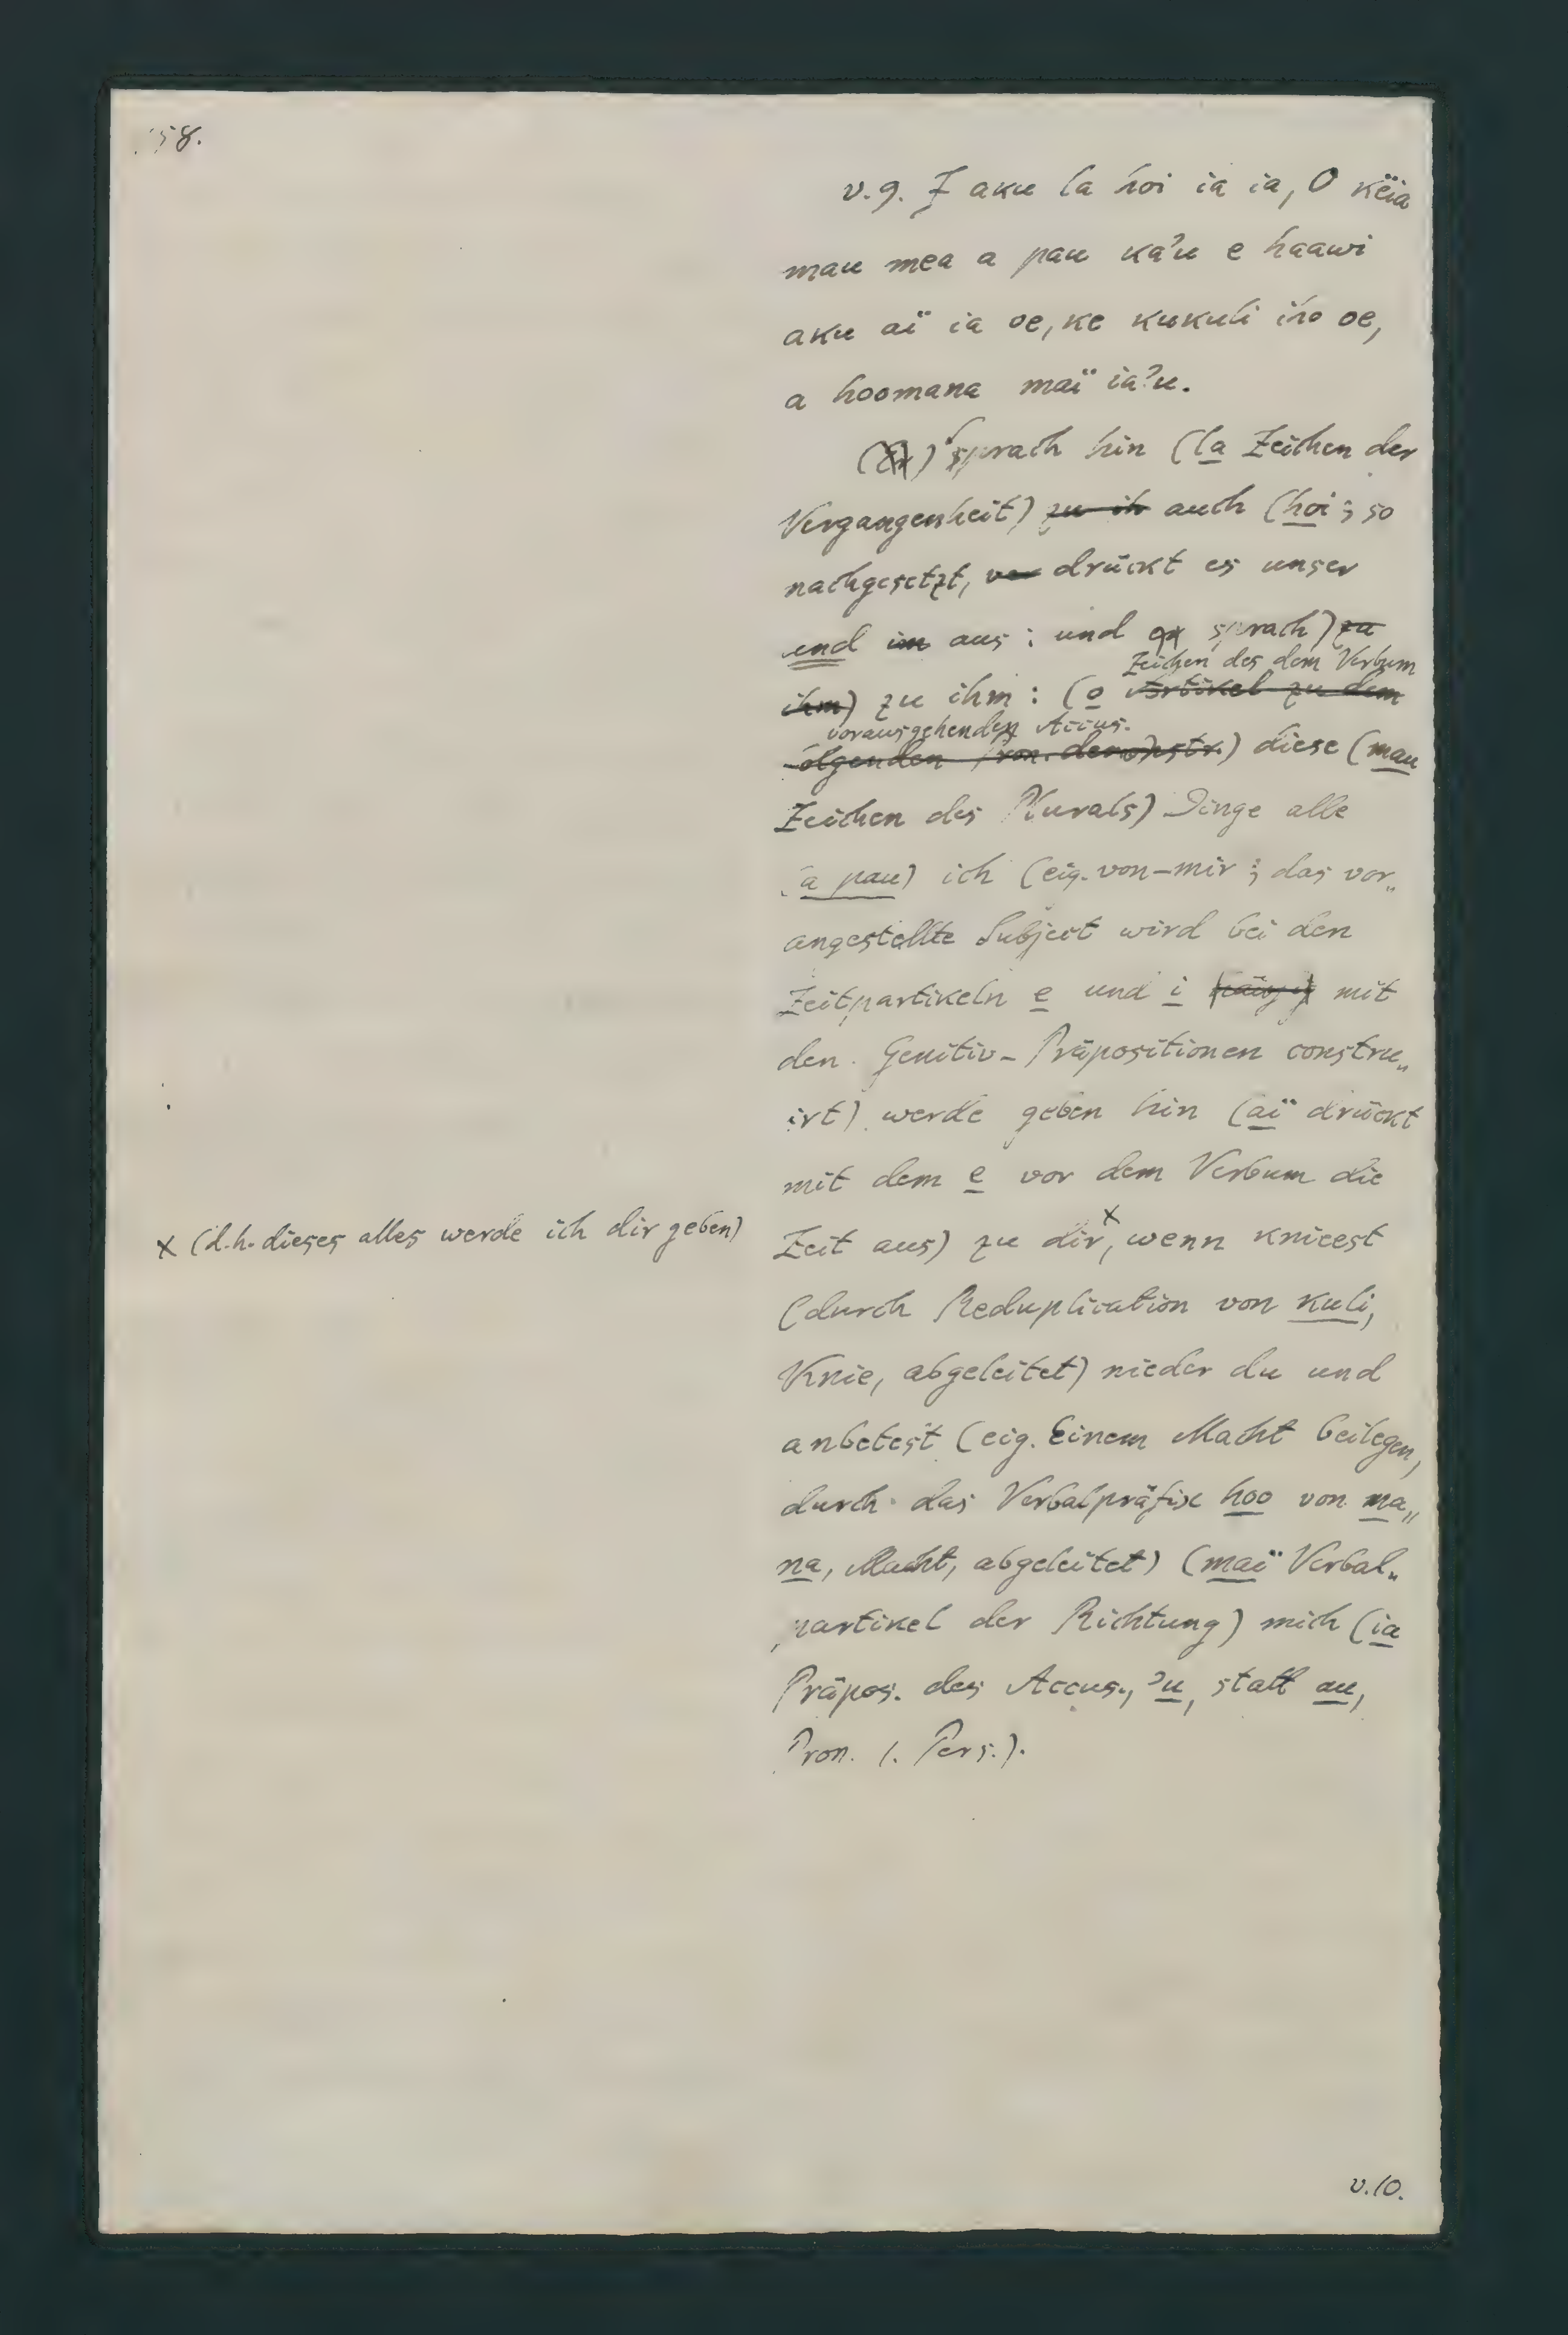 58.
v. 9. I aku la hoi ia ia, O këia
mau mea a pau ka'u e haawi
aku aï ia oe, ke kukuli iho oe,
a hoomana maï ia'u.
(Er) sprach hin (la Zeichen der
Vergangenheit) zu ih auch (hoi; so
nachgesetzt, ver drückt es unser
und im aus: und er sprach) zu
ihm) zu ihm: (o Artikel zu dem
Zeichen des dem Verbum
vorausgehenden Accus.
folgenden Pron. demonstr.) diese (mau
Zeichen des Plurals) Dinge alle
(a pau) ich (eig. von-mir; das vor„
angestellte Subject wird bei den
Zeitpartikeln e und i mit
den Genitiv-Präpositionen constru„
irt) werde geben hin (aï drückt
mit dem e vor dem Verbum die
Zeit aus) zu dir x, wenn knieest
x (d. h. dieses alles werde ich dir geben)
(durch Reduplication von kuli,
Knie, abgeleitet) nieder du und
anbetest (eig. Einem Macht beilegen,
durch das Verbalpräfix hoo von ma„
na, Macht, abgeleitet) (maï Verbal„
partikel der Richtung) mich (ia
Präpos. des Accus., 'u, statt au,
Pron. 1. Pers.).
v. 10.